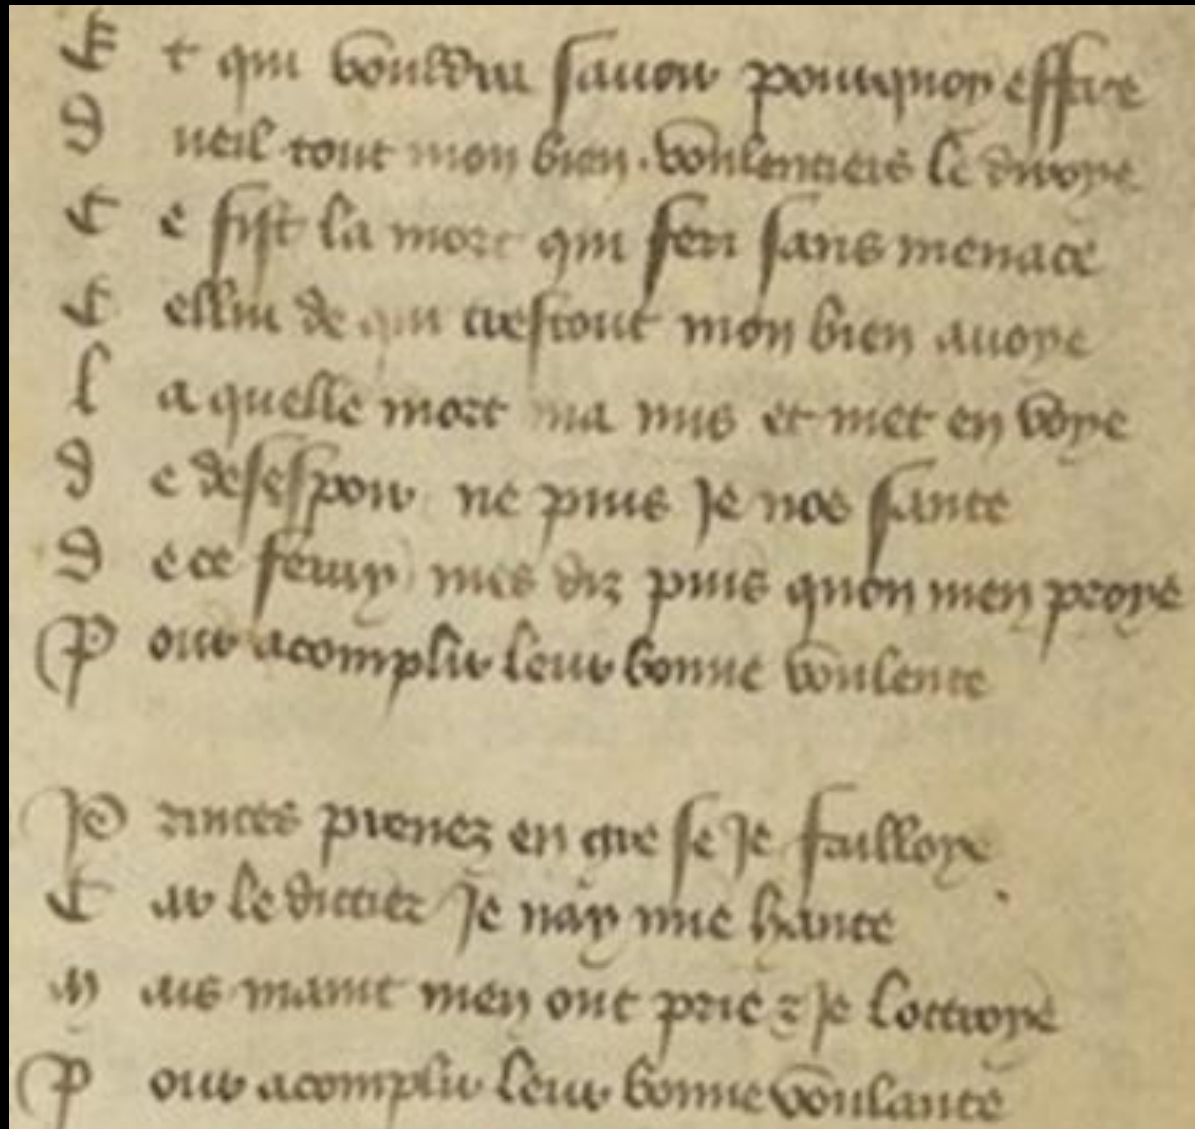 Et qui vouldra savoir pourquoy efface
Dueil tout mon bien. voulentiers le diroye
Ce fist la mort qui feri sans menace
Cellui de qui trestout mon bien avoye
Laquelle mort ma mis et met en voye
De desespoir ne puis je noe sante
De ce feray mes diz puis quon men proye
Pour acomplir leur bonne voulente
Princes prenez en gre se je failloye
Car le dittier je nay mie hante
Mais maint men ont prie z je lottroye
Pour acomplir leur bonne voulante